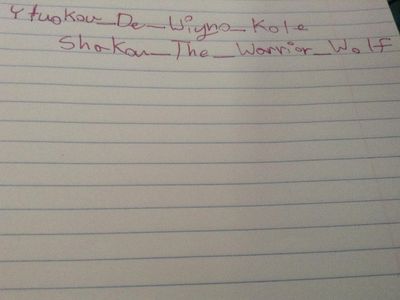 Ytuokou_De_Wiyno_Kote
Shokou_The_Warrior_Wolf